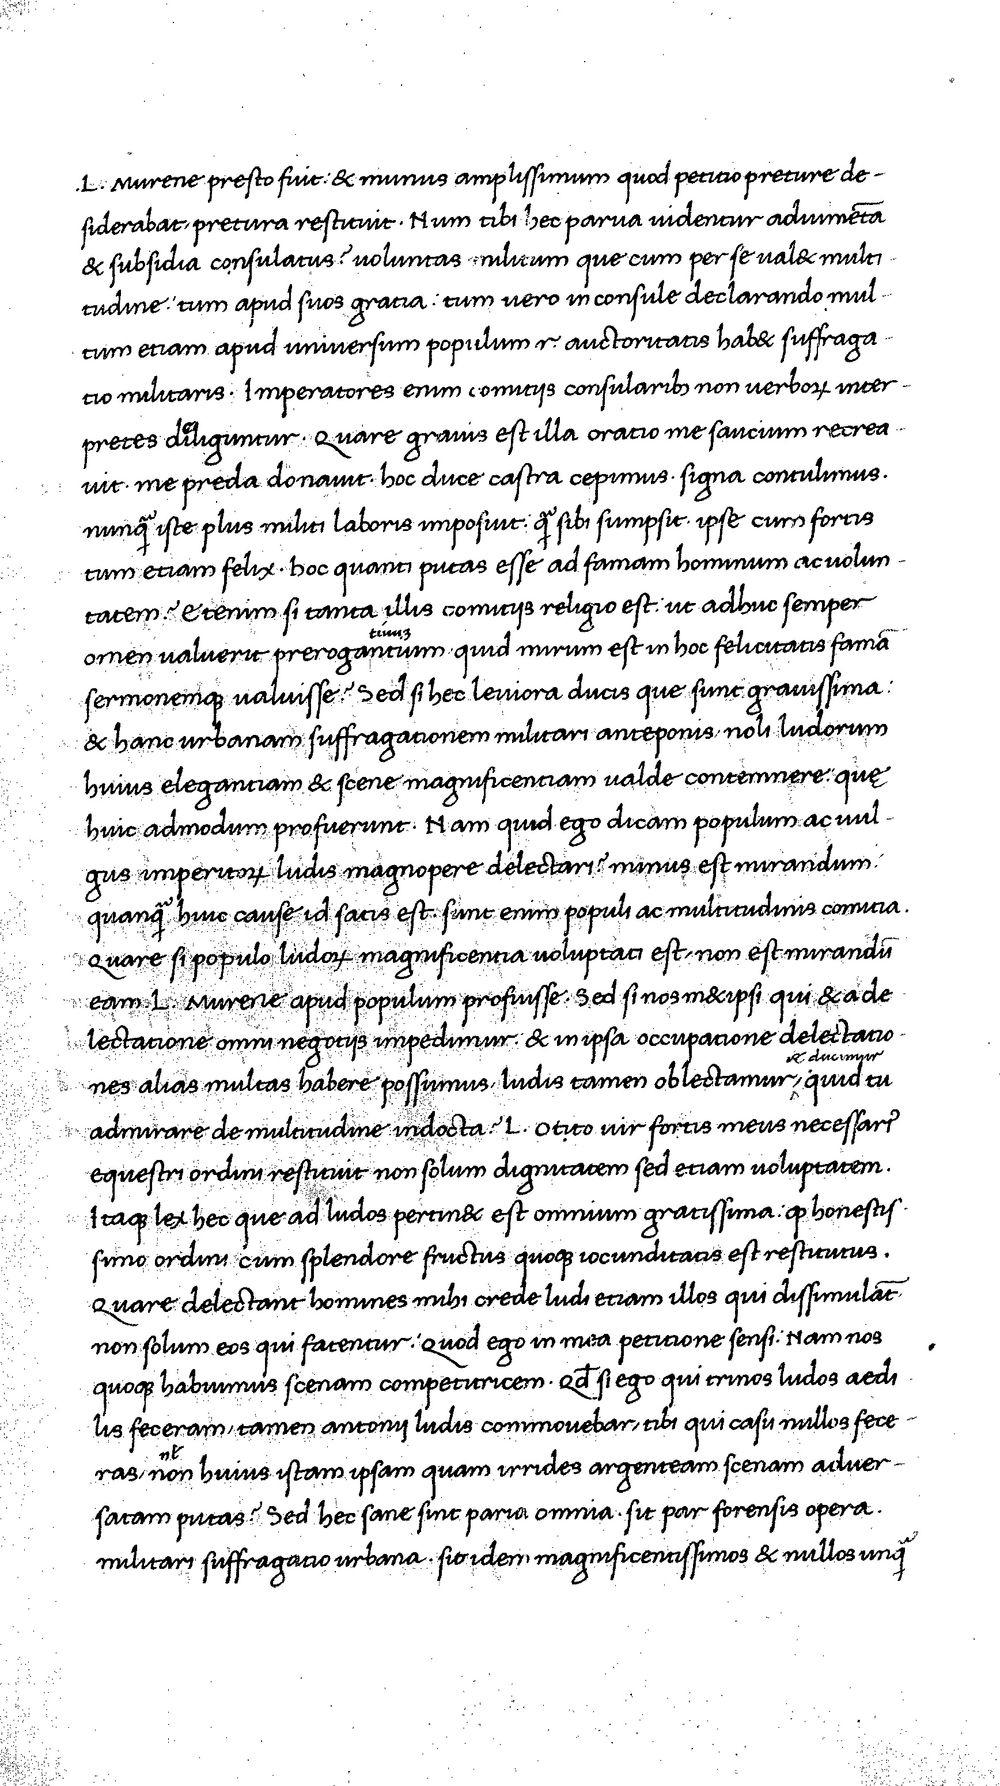 .L. Murene presto fuit: & munus amplissimum quod petitio preture de-
siderabat, pretura restituit. Num tibi hec parua uidentur adiumēta
& subsidia consulatus? uoluntas militum que cum per se ual& multi-
tudine: tum apud suos gratia: tum uero in consule declarando mul-
tum etiam apud uniuersum populum r. auctoritatis hab& suffraga-
tio militaris. Imperatores enim comitijs consularibꝫ non uerboꝝ inter-
pretes diliguntur. Quare grauis est illa oratio me saucium recrea-
uit. me preda donauit. hoc duce castra cepimus. signa contulimus.
nunq̃ iste plus militi laboris imposuit. q̃ sibi sumpsit. ipse cum fortis
tum etiam felix. hoc quanti putas esse ad famam hominum ac uolun-
tatem? Etenim si tanta illis comitijs religio est: ut adhuc semper
omen ualuerit prerogantiuum quid mirum est in hoc felicitatis famā
sermonemqꝫ ualuisse? Sed si hec leuiora ducis que sunt grauissima:
& hanc urbanam suffragationem militari anteponis, noli ludorum
huius elegantiam & scene magnificentiam ualde contemnere: quę
huic admodum profuerunt. Nam quid ego dicam populum ac uul-
gus imperitoꝝ ludis magnopere delectari? minus est mirandum:
quanq̃ huic cause id satis est. sunt enim populi ac multitudinis comitia.
Quare si populo ludoꝝ magnificentia uoluptati est, non est mirandū
eam .L. Murene apud populum profuisse. Sed si nos m&ipsi qui & a de
lectatione omni negotijs impedimur. & in ipsa occupatione delectatio-
nes alias multas habere possumus, ludis tamen oblectamur, & ducimur quid tu
admirare de multitudine indocta? L. Otito uir fortis meus necessari9
equestri ordini restituit non solum dignitatem sed etiam uoluptatem.
Itaqꝫ lex hec que ad ludos pertin& est omnium gratissima: ꝙ honestis-
simo ordini cum splendore fructus quoqꝫ iocunditatis est restitutus.
Quare delectant homines mihi crede ludi etiam illos qui dissimulāt
non solum eos qui fatentur. Quod ego in mea petitione sensi. Nam nos
quoqꝫ habuimus scenam competitricem. Qd̄ si ego qui trinos ludos aedi
lis feceram, tamen antonij ludis commouebar, tibi qui casu nullos fece-
ras, non huius istam ipsam quam irrides argenteam scenam aduer-
satam putas? Sed hec sane sint paria omnia. sit par forensis opera.
militari suffragatio urbana. sit idem magnificentissimos & nullos unq̃